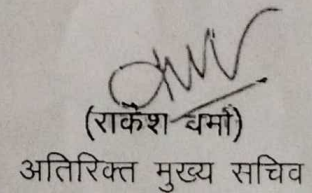 (राकेश वर्मा)
अतिरिक्त मुख्य सचिव